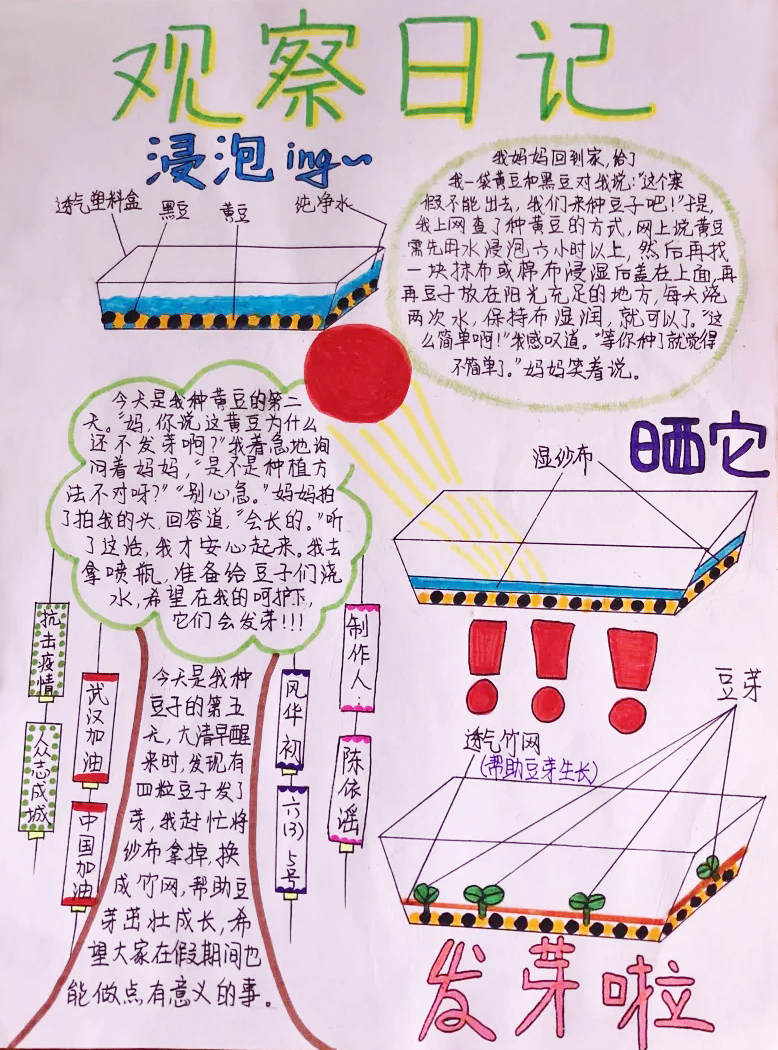 观察日记
浸泡ing~
透气塑料盒
黑豆
黄豆
纯净水
我妈妈回到家,给了
我一袋黄豆和黑豆对我说:“这个寒
假不能出去,我们来种豆子吧!”于是,
我上网查了种黄豆的方式,网上说黄豆
需先用水浸泡六小时以上,然后再找
一块抹布或棉布浸湿后盖在上面,再
再豆子放在阳光充足的地方,每天浇
两次水,保持布湿润,就可以了。“这
么简单啊!”我感叹道。“等你种了就觉得
不简单了。”妈妈笑着说。
今天是我种黄豆的第二
天。“妈,你说这黄豆为什么
还不发芽啊?”我着急地询
问着妈妈,“是不是种植方
法不对呀?”“别心急。”妈妈拍
了拍我的头,回答道,“会长的。”听
了这话,我才安心起来。我去
拿喷瓶,准备给豆子们浇
水,希望在我的呵护下,
它们会发芽!!!
晒它
湿纱布
抗击疫情
众志成城
武汉加油
中国加油
今天是我种
豆子的第五
天,大清早醒
来时,发现有
四粒豆子发了
芽,我赶忙将
纱布拿掉,换
成竹网,帮助豆
芽茁壮成长,希
望大家在假期间也
能做点有意义的事。
风华初
六(3)5号
制作人:
陈依谣
豆芽
透气竹网
(帮助豆芽生长)
发芽啦